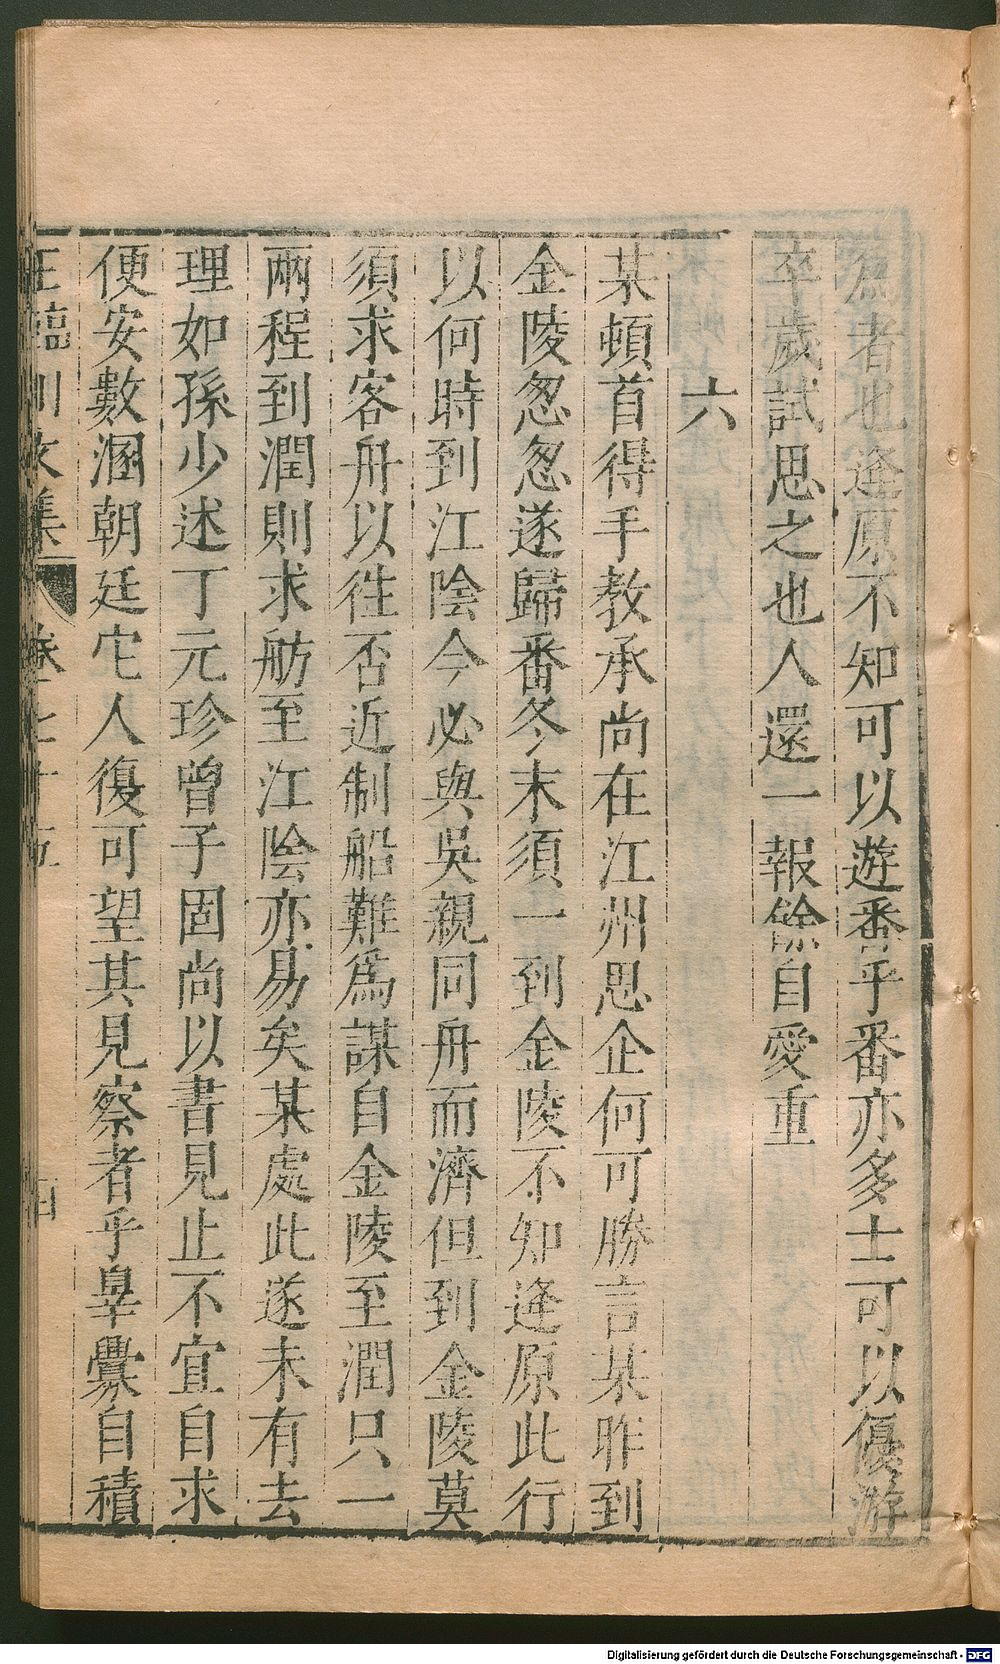 爲者也逢原不知可以遊番乎番亦多士可以優游
卒歲試思之也人還一報餘自愛重
六
某頓首得手教承尚在江州思企何可勝言某昨到
金陵怱怱遂歸番冬末須一到金陵不知逢原此行
以何時到江陰今必與吳親同舟而濟但到金陵莫
須求客舟以徃否近制船難爲謀自金陵至潤只一
兩程到潤則求舫至江陰亦易矣某處此遂未有去
理如孫少述丁元珍曾子固尚以書見止不宜自求
便安數溷朝廷它人復可望其見察者乎辠舋自積
王臨川文集 卷七十五 四
Digitalisierung gefördert durch die Deutsche Forschungsgemeinschaft - DFG